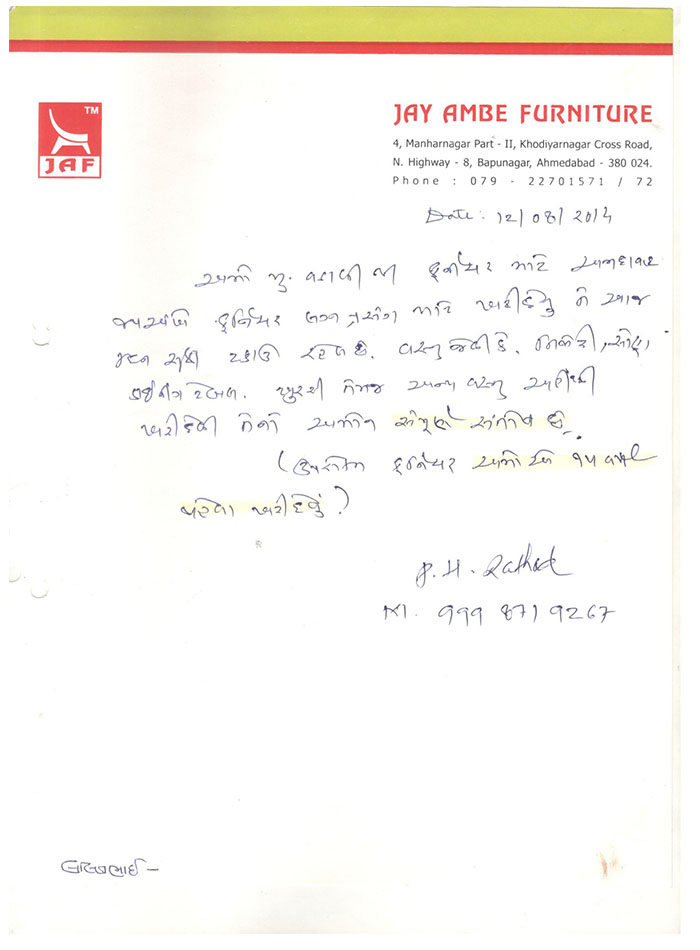 TM
JAF
JAY AMBE FURNITURE
4, Manharnagar Part - II, Khodiyarnagar Cross Road,
N. Highway - 8, Bapunagar, Ahmedabad - 380 024.
Phone : 079 - 22701571 / 72
Date : 12/08/2014
અમો મુ. ફર્નિચર માટે
ફર્નિચર લગ્ન પ્રસંગ માટે ખરીદેલું તે આજ
સુધી ટકાઉ રહેલ છે. વસ્તુ જેવી કે. તિજોરી, સોફા,
ડાઈનીંગ ટેબલ. ખુરશી તેમજ અન્ય વસ્તુ અહીંથી
ખરીદેલી તેનો અમોને સંપૂર્ણ સંતોષ છે.
(ઉપરોક્ત ફર્નિચર અમો એ ૧૫ વર્ષ
પહેલા ખરીદેલું)
P. H. Rathod
M. 999 871 9267